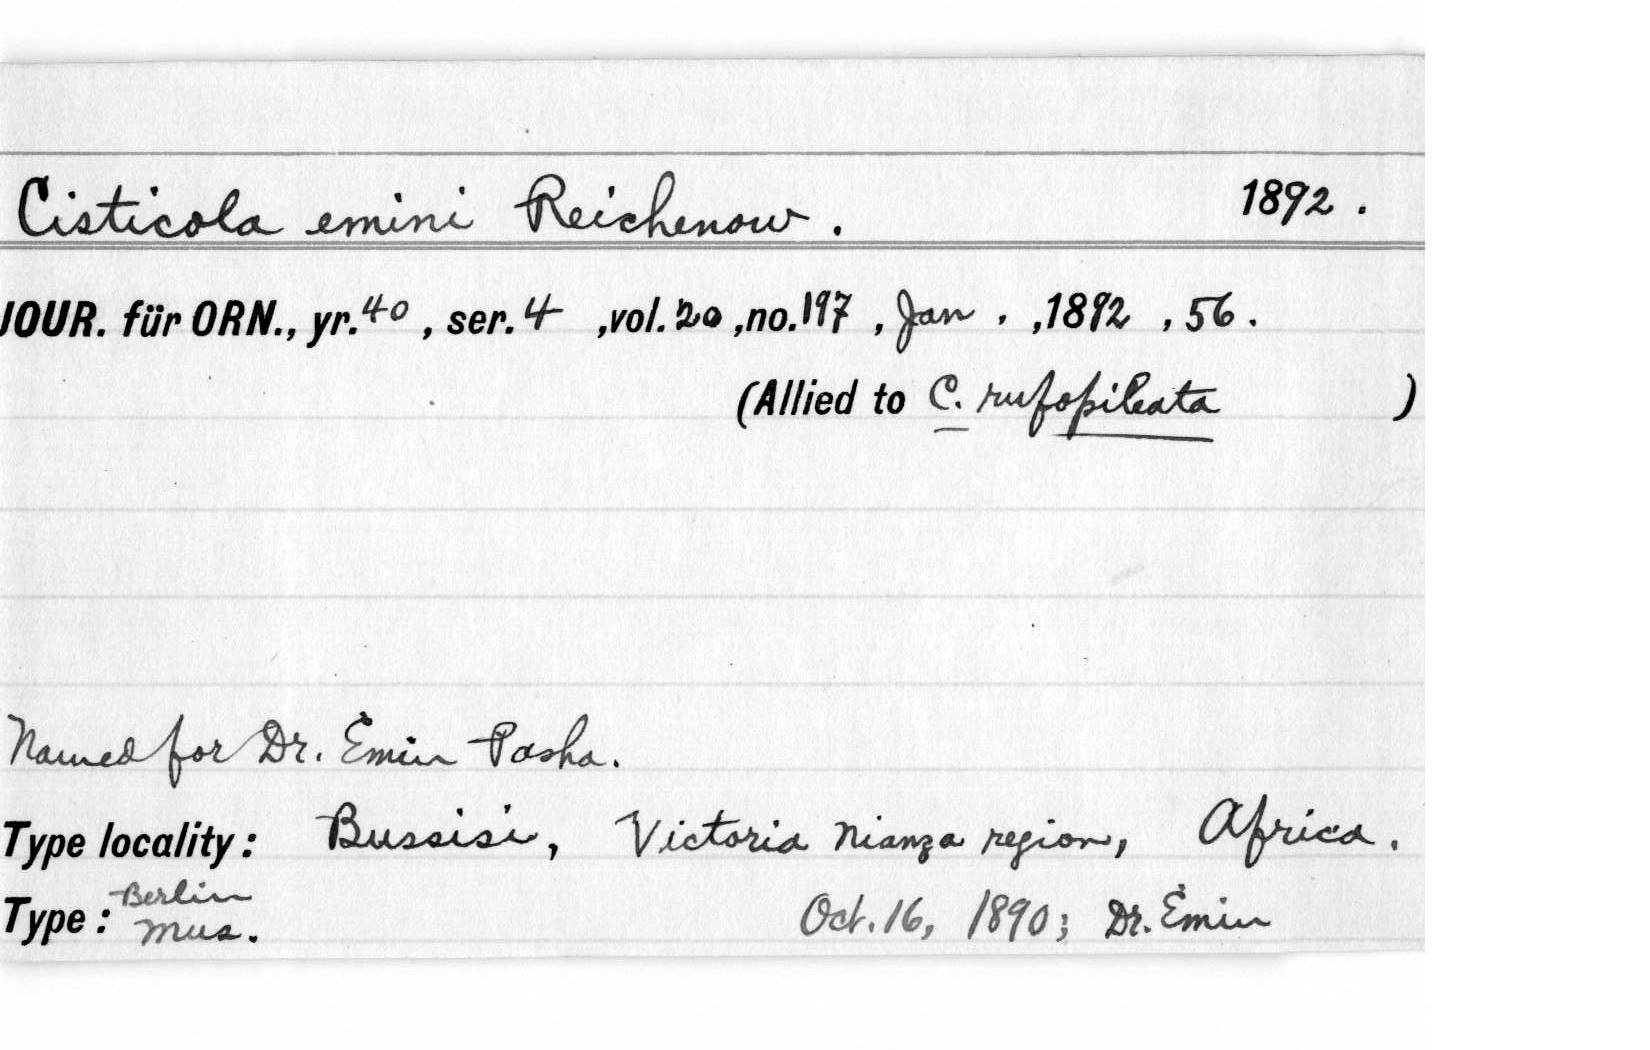 Cisticola emini Reichenow. 1892.
JOUR. für ORN., yr. 40, ser. 4, vol. 20, no. 197, Jan., 1892, 56.
(Allied to C. rufopileata)
Named for Dr. Emin Pasha.
Type locality: Bussisi, Victoria Nianza region, Africa.
Type: Berlin Mus. Oct. 16, 1890; Dr. Emin